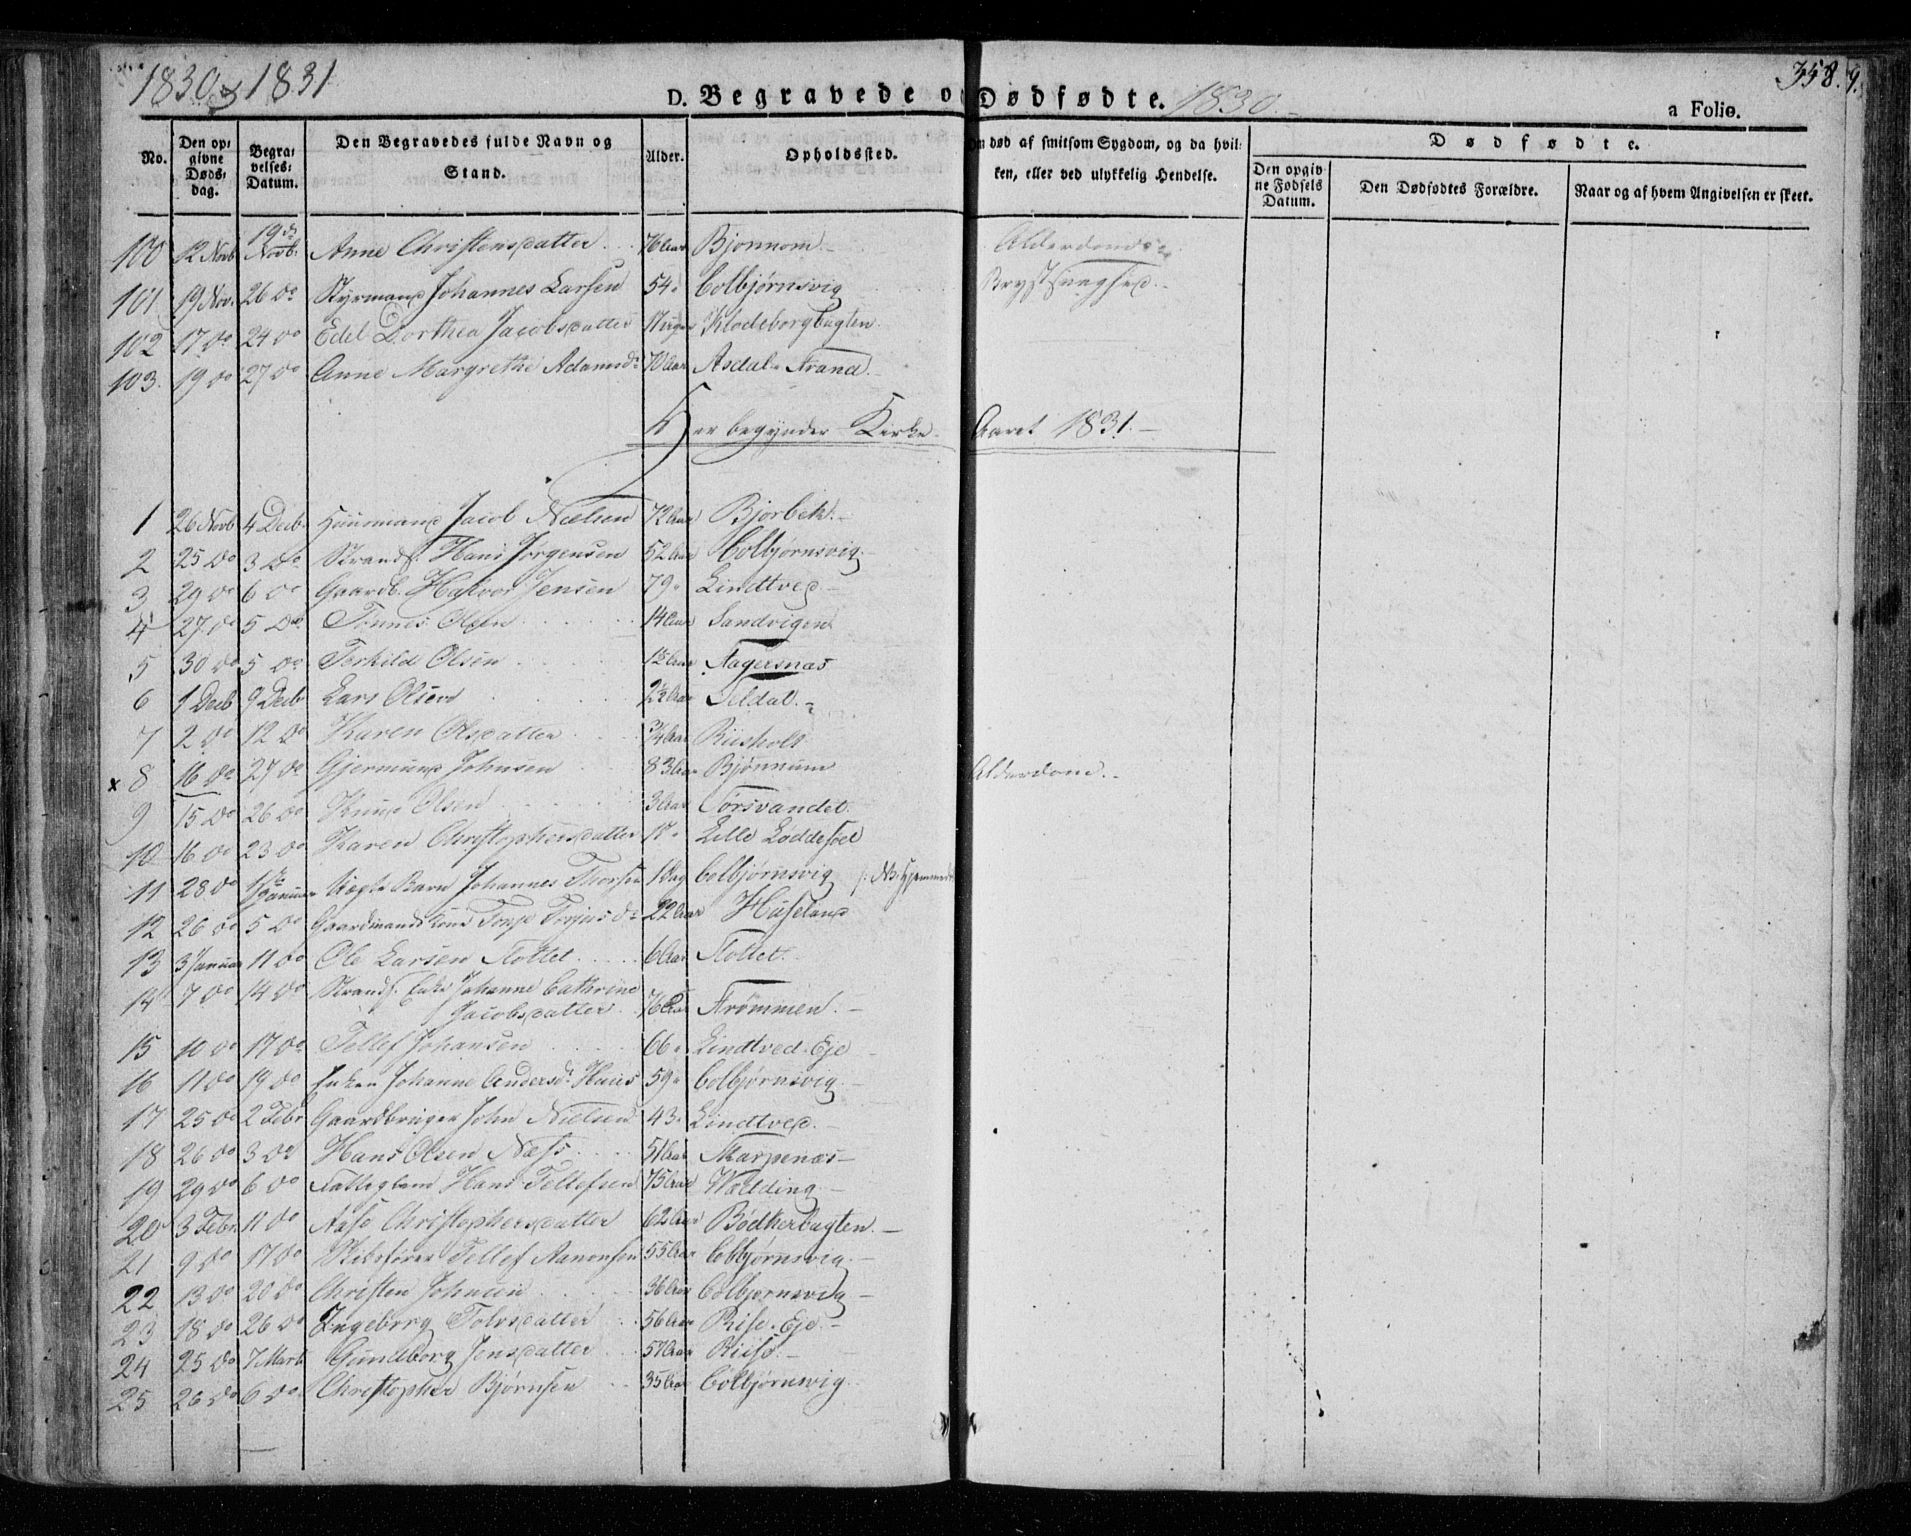 1830 og 1831
D. Begravede o Dødfødte. 1830.
358. 9.
a Folio.
No. Den opgivne Døds-dag. Begravelses-Datum. Den Begravedes fulde Navn og Stand. Alder. Opholdssted. Om død af smitsom Sygdom, og da hvilken, eller ved ulykkelig Hendelse. Dødfødte.
Den opgivne Fødsels Datum. Den Dødfødtes Forældre. Naar og af hvem Angivelsen er skeet.
100 12 Novb 19 Novb. Anne Christensdatter 76 Aar Bjonnom Alderdom
101 19 Nov. 26 do Styrmand Johannes Larsen 54 " Colbjørnsvig Brystsvaghed
102 17 do 24 do Edel Dorthea Jacobsdatter 17 uger Klodeborgbugten
103. 19 do 27 do Anne Margrethe Adamsdr 70 Aar Asdal Strand
Her begynder Kirke Aaret 1831.
1 26 Novb 4 Decb Huusmand Jacob Nielsen 72 Aar Bjorbek
2 25 do 3 do Strands. Hans Jørgensen 52 Aar Colbjørnsvig
3 29 do 6 do Gaardb. Halvor Jensen 79 " Lindtved
4 27 do 5 do Tønnes Olsen 14 Aar Sandvigen
5 30 do 5 do Terkild Olsen Aar Fagersnæs
6 1 Decb 9 Decb Lars Olsen 2½ Aar Seldal
7 2 do 12 do Karen Olsdatter ¾ Aar Riisholt
x 8 16 do 27 do Gjermund Johnsen 83 Aar Bjønnum Alderdom
9 15 do 26 do Knud Olsen 3 Aar Torsvandet
10 16 do 23 do Karen Christophersdatter 17 " Lille Loddesøel
11 28 do 1 Januar Uægte Barn Johannes Thorsen 1 Dag Colbjørnsvig /: NB. Hjemmed
12 26 do 5 do Gaardmands Kone 22 Aar Huseland
13 3 Januar 11 do Ole Larsen Slottet 6 Aar Slottet
14 7 do 14 do Strands. Enke Johanne Cathrine
Jacobsdatter 76 Aar Strømmen
15 10 do 17 do Tellef Johansen 66 " Lindtved Eje
16 11 do 19 do Enken Johanne Andersdr Huus 59 " Colbjørnsvig
17 25 do 2 Febr Gaardbruger John Nielsen 43 " Lindtved
18 26 do 3 do Hans Olsen Næss 51 Aar Skarpenæs
19 29 do 6 do Fattiglem Hans Tellefsen 75 Aar Wedding
20 3 Febr. 11 do Aase Christophersdatter 62 Aar Bødkerbugten
21 9 do 17 do Skibsfører Tellef Aanonsen 55 Aar Colbjørnsvig
22 13 do 20 do Christen Johnsen 36 Aar Colbjørnsvig
23 18 do 26 do Ingeborg Tolvsdatter 56 Aar Rise Eje
24 25 do 7 Marts Gundborg Jensdatter 57 Aar Riise
25 26 do 6 do Christopher Bjørnsen 35 Aar Colbjørnsvig